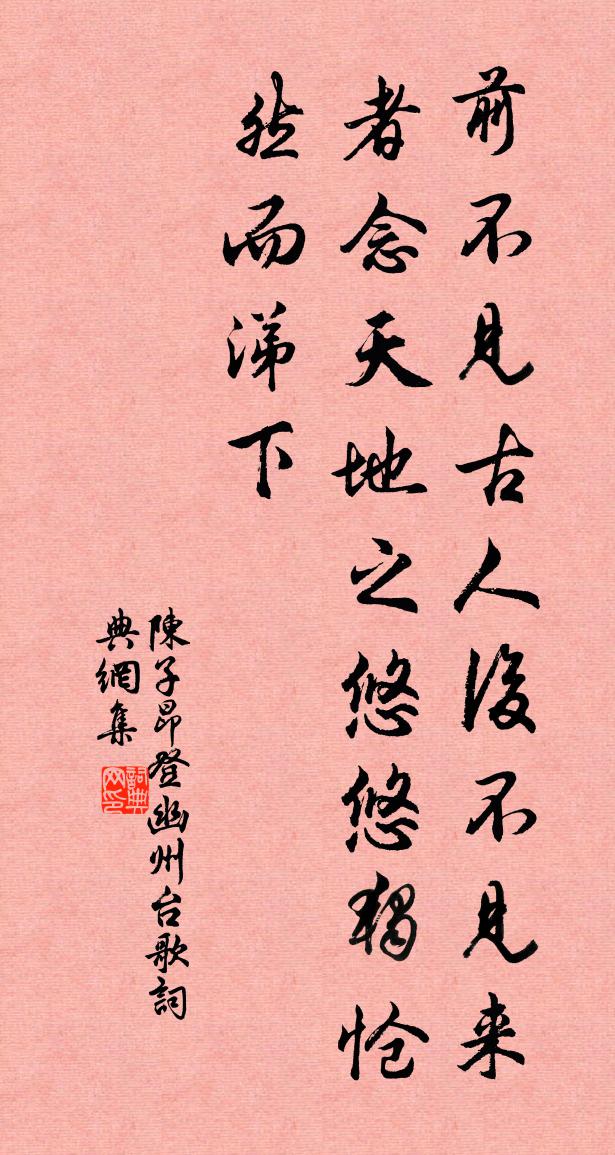 前不見古人後不見来
者念天地之悠悠獨愴
然而涕下
陳子昂登幽州台歌詞
典網集
詞典网印